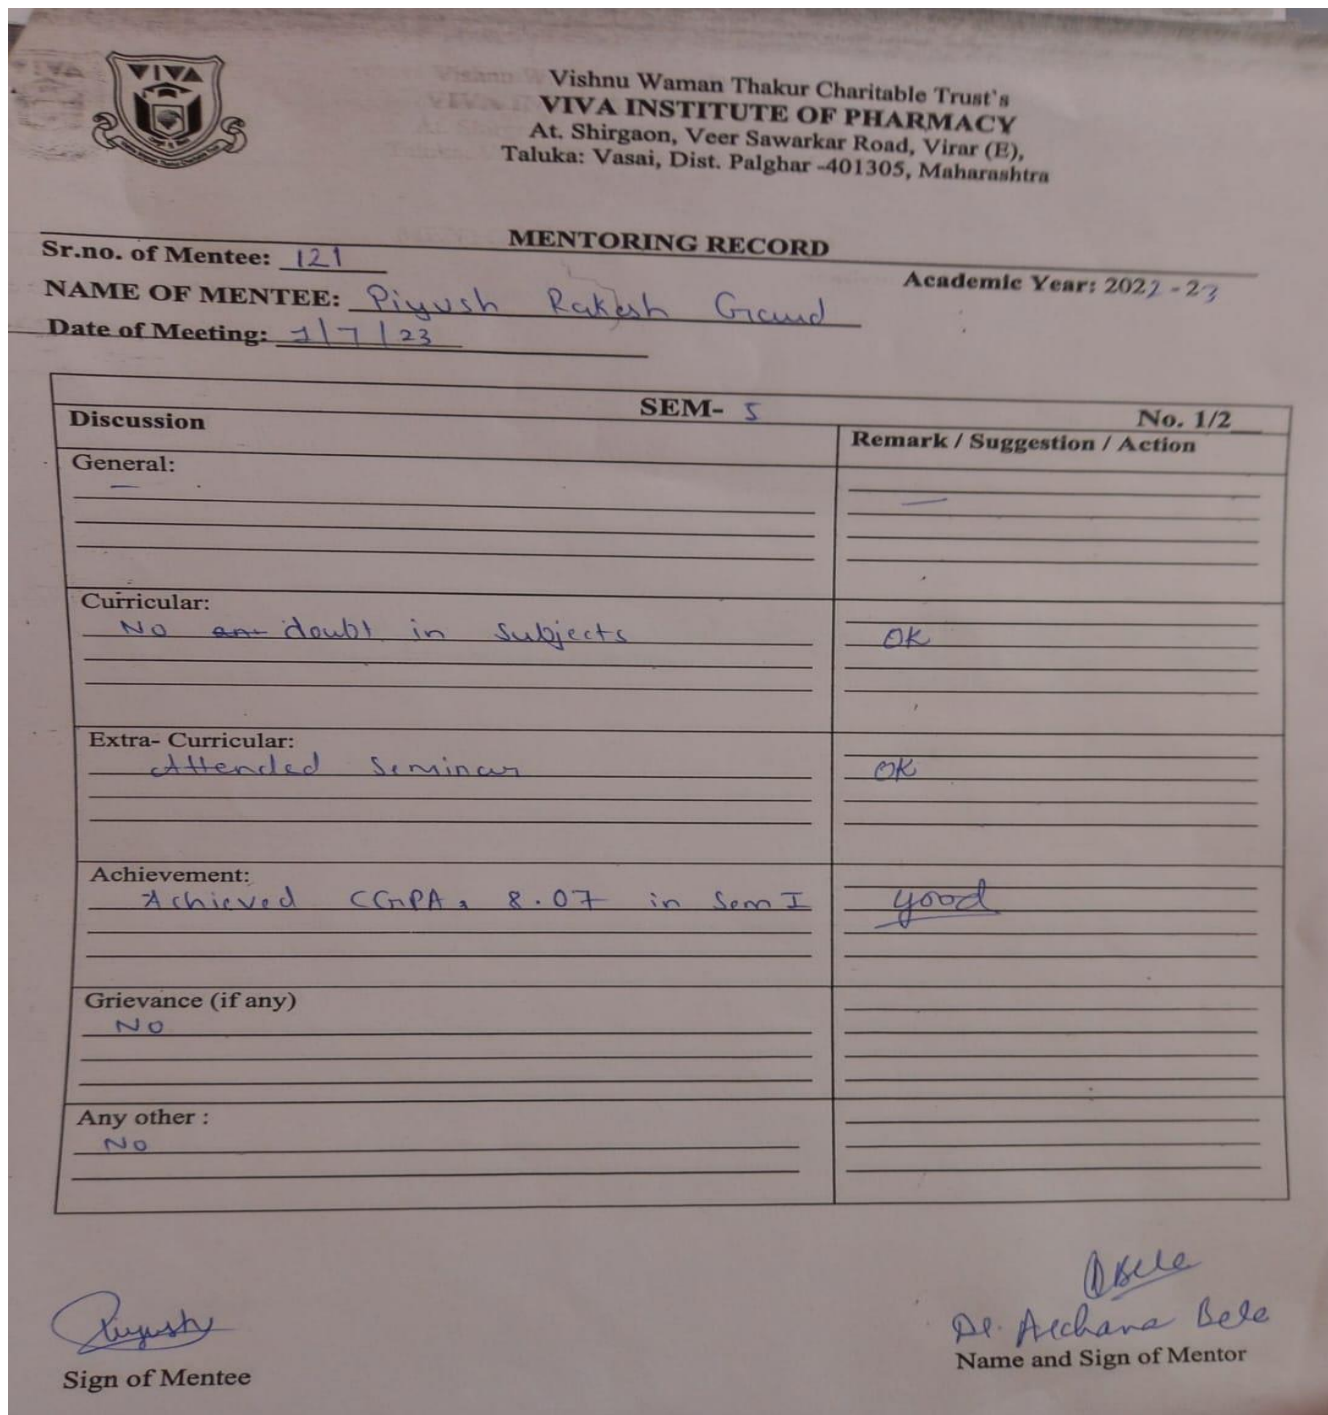 VIVA
Vishnu Waman Thakur Charitable Trust`s
VIVA INSTITUTE OF PHARMACY
At. Shirgaon, Veer Sawarkar Road, Virar (E),
Taluka: Vasai, Dist. Palghar -401305, Maharashtra
MENTORING RECORD
Sr.no. of Mentee: 121
Academic Year: 2022-23
NAME OF MENTEE: Piyush Rakesh Gaud
Date of Meeting: 1/7/23
SEM- 5
No. 1/2
Discussion
Remark / Suggestion / Action
General:
—
—
Curricular:
No doubt in Subjects
OK
Extra- Curricular:
Attended Seminar
OK
Achievement:
Achieved CGPA 8.07 in Sem I
good
Grievance (if any)
NO
Any other :
NO
Piyush
Sign of Mentee
ABele
Dr. Archana Bele
Name and Sign of Mentor